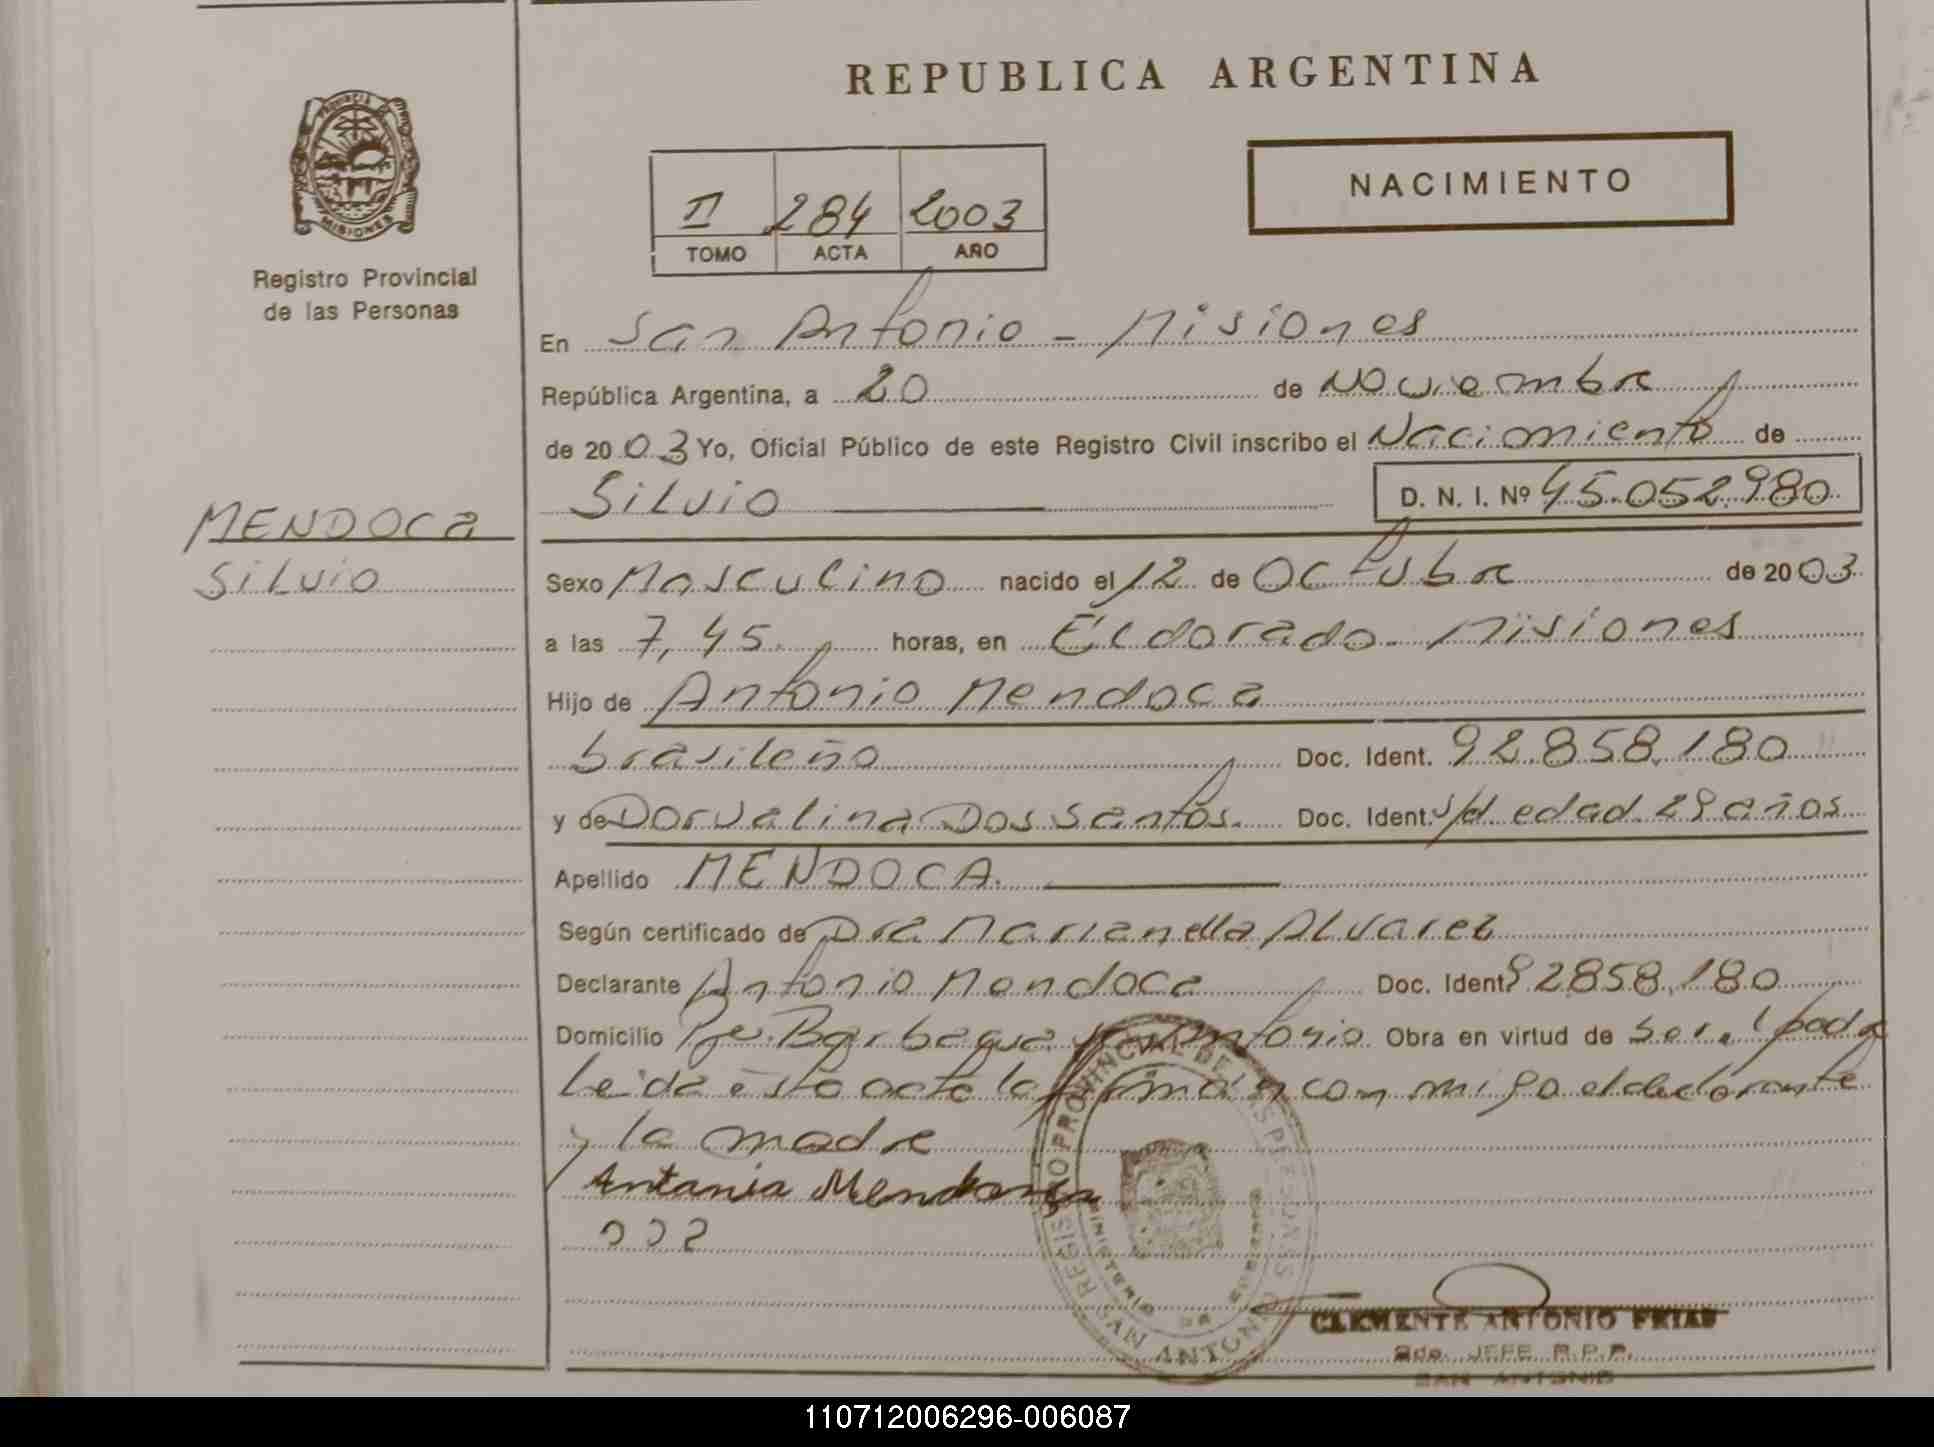 REPUBLICA ARGENTINA
PROVINCIA DE
MISIONES
Registro Provincial
de las Personas
NACIMIENTO
II 284 2003
TOMO ACTA AÑO
En San Antonio - Misiones
República Argentina, a 20 de Noviembre
de 2003 Yo, Oficial Público de este Registro Civil inscribo el Nacimiento de
Silvio D. N. I. Nº 45.052.980
MENDOCA
Silvio
Sexo Masculino nacido el 12 de Octubre de 2003
a las 7,45. horas, en Eldorado - Misiones
Hijo de Antonio Mendoca
brasileño Doc. Ident. 92.858.180
y de Dorvalina Dos Santos. Doc. Ident. s/d. edad 29 años
Apellido MENDOCA.
Según certificado de Dra Marianella Alvarez
Declarante Antonio Mendoca Doc. Ident. 92858.180
Domicilio Antonio. Obra en virtud de ser el padre
Leida ésta acta la firman conmigo el declarante
y la madre
Antania Mendonsa
REGISTRO PROVINCIAL DE LAS PERSONAS
MINISTERIO DE GOBIERNO
SAN ANTONIO
CLEMENTE ANTONIO FRIAS
2do. JEFE R.P.P.
SAN ANTONIO
110712006296-006087